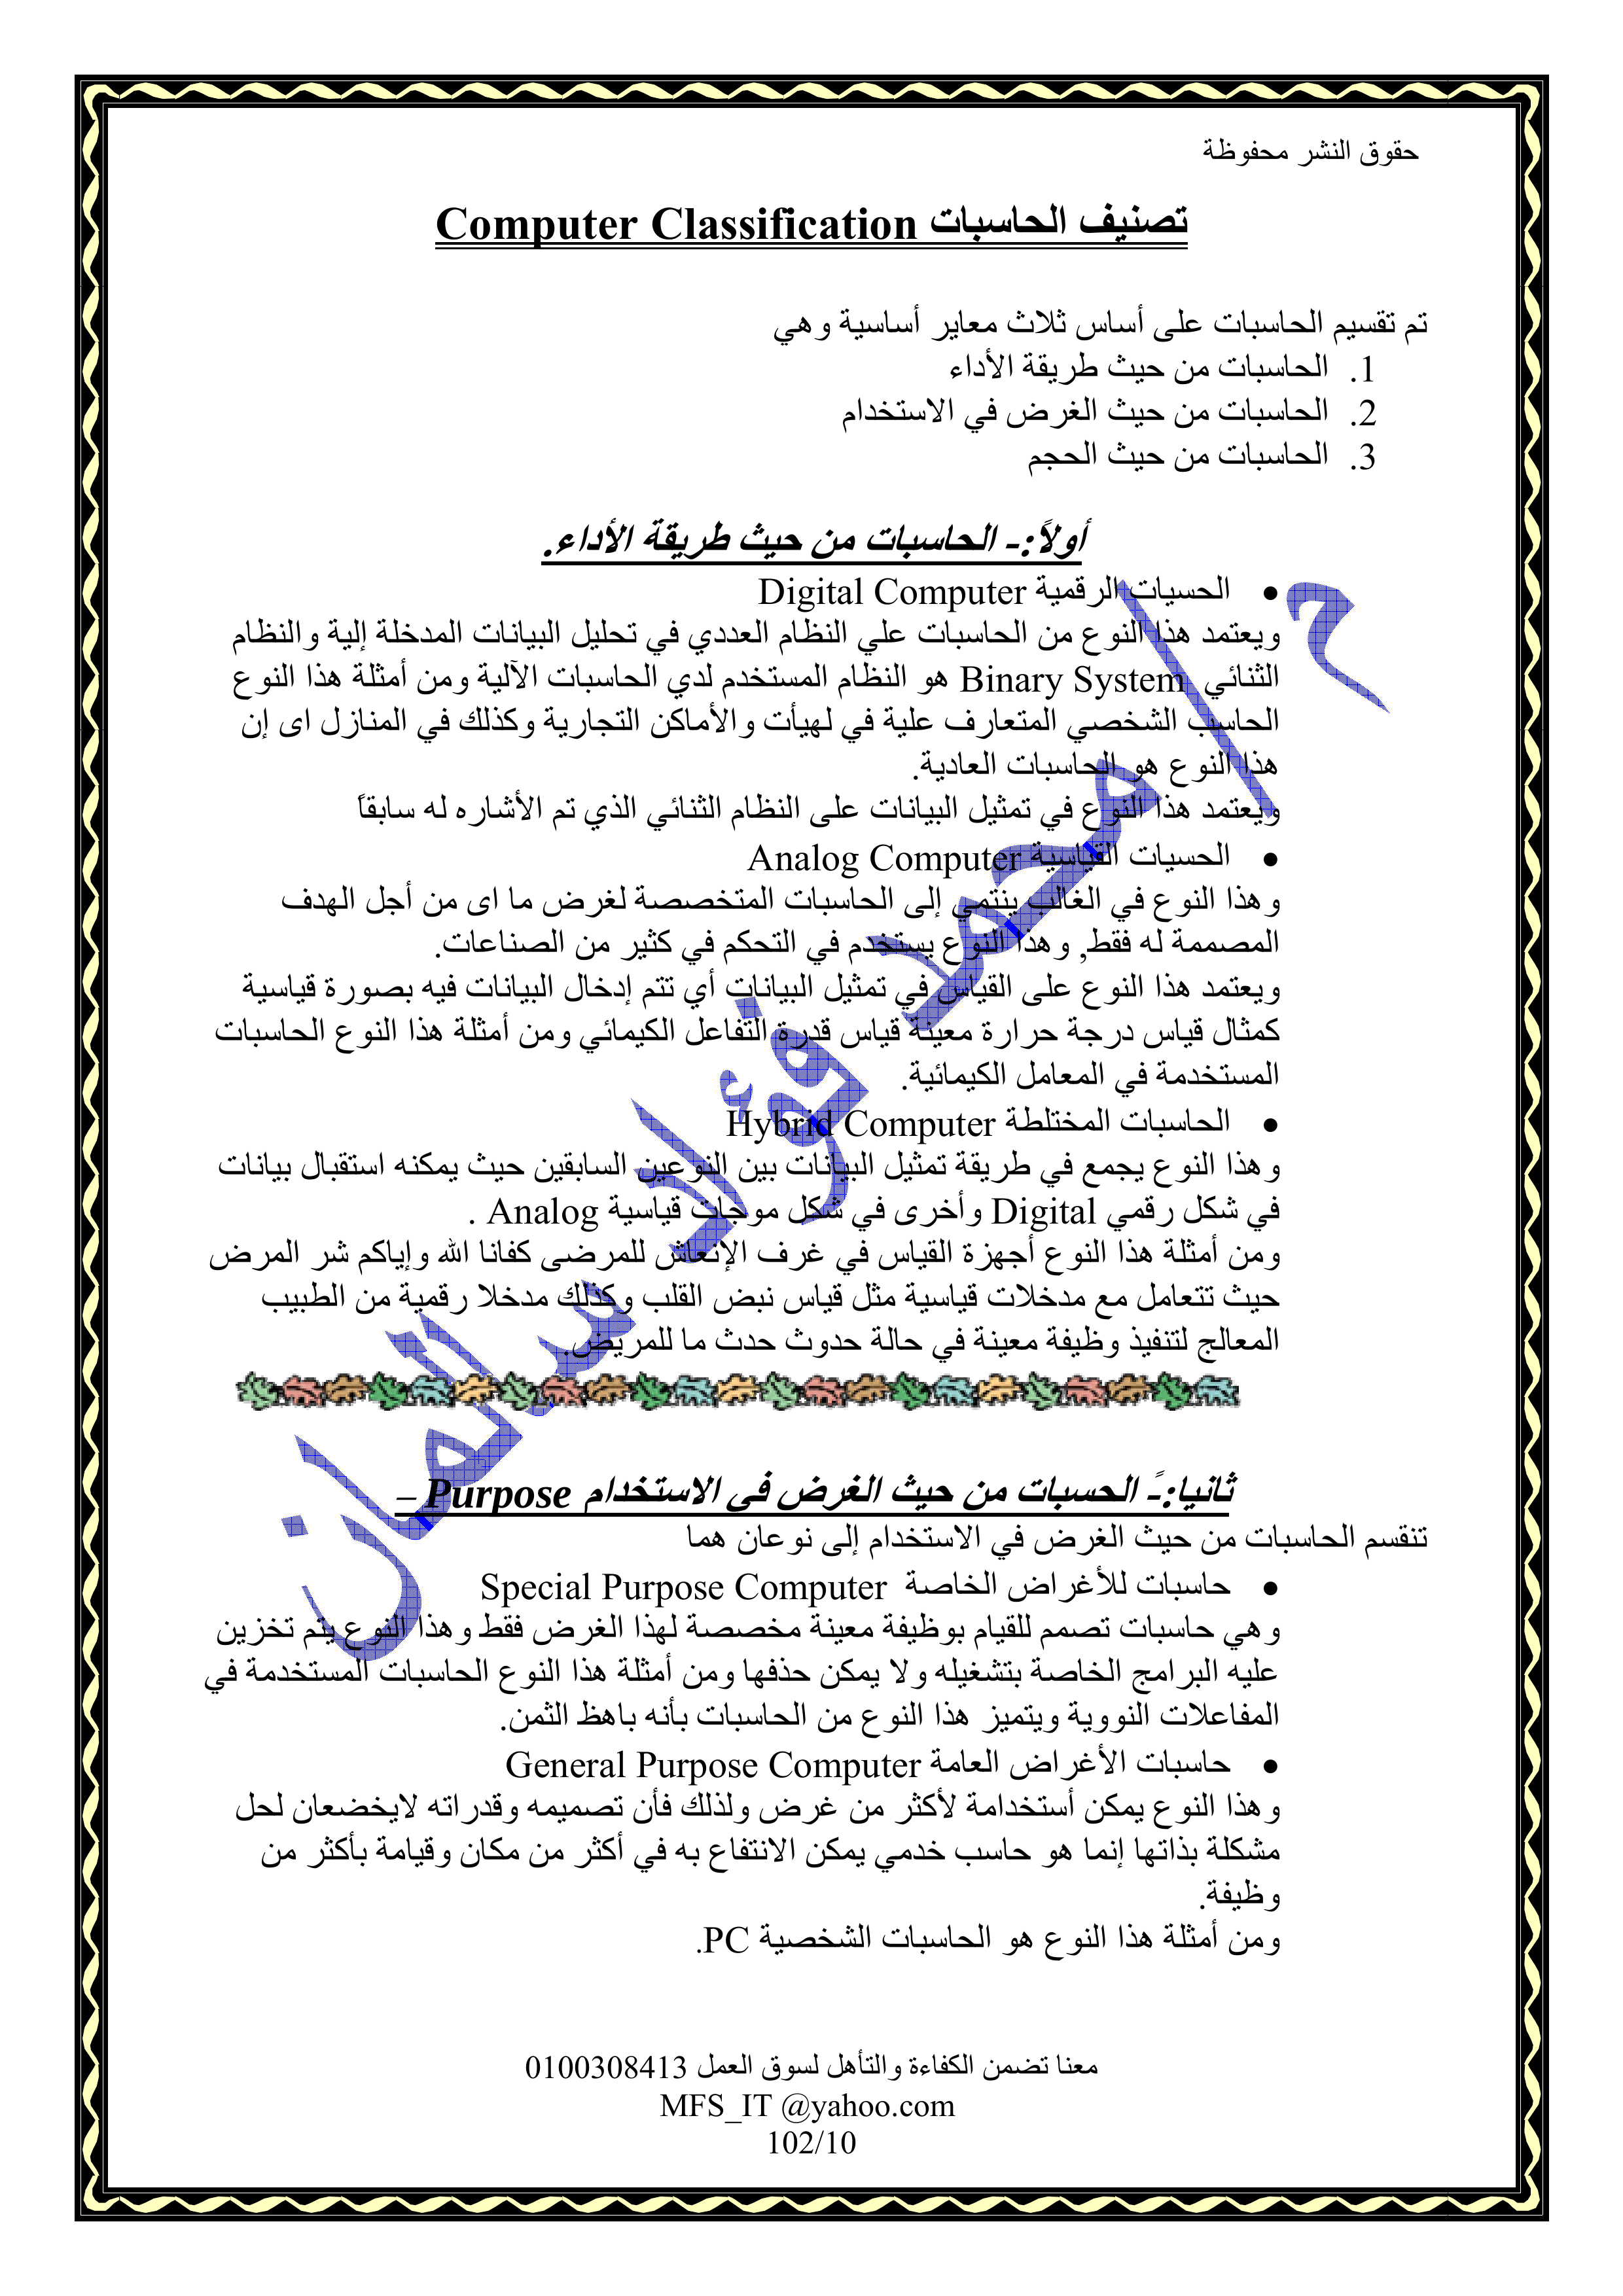 حقوق النشر محفوظة
تصنيف الحاسبات Computer Classification
تم تقسيم الحاسبات على أساس ثلاث معاير أساسية وهي
1. الحاسبات من حيث طريقة الأداء
2. الحاسبات من حيث الغرض في الاستخدام
3. الحاسبات من حيث الحجم
أولاً:- الحاسبات من حيث طريقة الأداء.
• الحسيات الرقمية Digital Computer
ويعتمد هذا النوع من الحاسبات علي النظام العددي في تحليل البيانات المدخلة إلية والنظام
الثنائي Binary System هو النظام المستخدم لدي الحاسبات الآلية ومن أمثلة هذا النوع
الحاسب الشخصي المتعارف علية في لهيأت والأماكن التجارية وكذلك في المنازل اى إن
هذا النوع هو الحاسبات العادية.
ويعتمد هذا النوع في تمثيل البيانات على النظام الثنائي الذي تم الأشاره له سابقاً
• الحسيات القياسية Analog Computer
وهذا النوع في الغالب ينتمي إلى الحاسبات المتخصصة لغرض ما اى من أجل الهدف
المصممة له فقط, وهذا النوع يستخدم في التحكم في كثير من الصناعات.
ويعتمد هذا النوع على القياس في تمثيل البيانات أي تتم إدخال البيانات فيه بصورة قياسية
كمثال قياس درجة حرارة معينة قياس قدرة التفاعل الكيمائي ومن أمثلة هذا النوع الحاسبات
المستخدمة في المعامل الكيمائية.
• الحاسبات المختلطة Hybrid Computer
وهذا النوع يجمع في طريقة تمثيل البيانات بين النوعين السابقين حيث يمكنه استقبال بيانات
في شكل رقمي Digital وأخرى في شكل موجات قياسية Analog .
ومن أمثلة هذا النوع أجهزة القياس في غرف الإنعاش للمرضى كفانا الله وإياكم شر المرض
حيث تتعامل مع مدخلات قياسية مثل قياس نبض القلب وكذلك مدخلا رقمية من الطبيب
المعالج لتنفيذ وظيفة معينة في حالة حدوث حدث ما للمريض.
ثانيا:-ً الحسبات من حيث الغرض في الاستخدام Purpose –
تنقسم الحاسبات من حيث الغرض في الاستخدام إلى نوعان هما
• حاسبات للأغراض الخاصة Special Purpose Computer
وهي حاسبات تصمم للقيام بوظيفة معينة مخصصة لهذا الغرض فقط وهذا النوع يتم تخزين
عليه البرامج الخاصة بتشغيله ولا يمكن حذفها ومن أمثلة هذا النوع الحاسبات المستخدمة في
المفاعلات النووية ويتميز هذا النوع من الحاسبات بأنه باهظ الثمن.
• حاسبات الأغراض العامة General Purpose Computer
وهذا النوع يمكن أستخدامة لأكثر من غرض ولذلك فأن تصميمه وقدراته لايخضعان لحل
مشكلة بذاتها إنما هو حاسب خدمي يمكن الانتفاع به في أكثر من مكان وقيامة بأكثر من
وظيفة.
ومن أمثلة هذا النوع هو الحاسبات الشخصية PC.
م / محمد فؤاد سالمان
معنا تضمن الكفاءة والتأهل لسوق العمل 0100308413
MFS_IT @yahoo.com
102/10